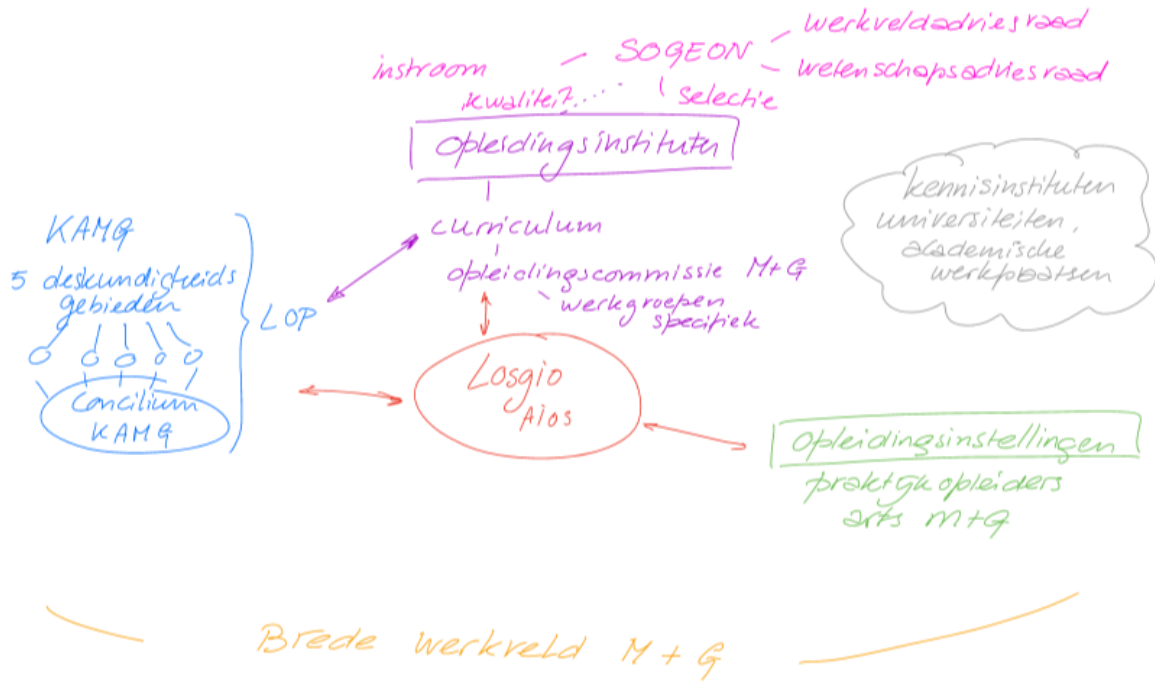 werkveldadviesraad
SOGEON
wetenschapsadviesraad
instroom
kwaliteit?
selectie
Opleidingsinstituten
curriculum
opleidingscommissie M+G
werkgroepen
specifiek
KAMG
5 deskundigheids
gebieden
LOP
Concilium
KAMG
kennisinstituten
universiteiten,
academische
werkplaatsen
Losgio
Aios
Opleidingsinstellingen
praktijkopleiders
arts M+G
Brede werkveld M + G